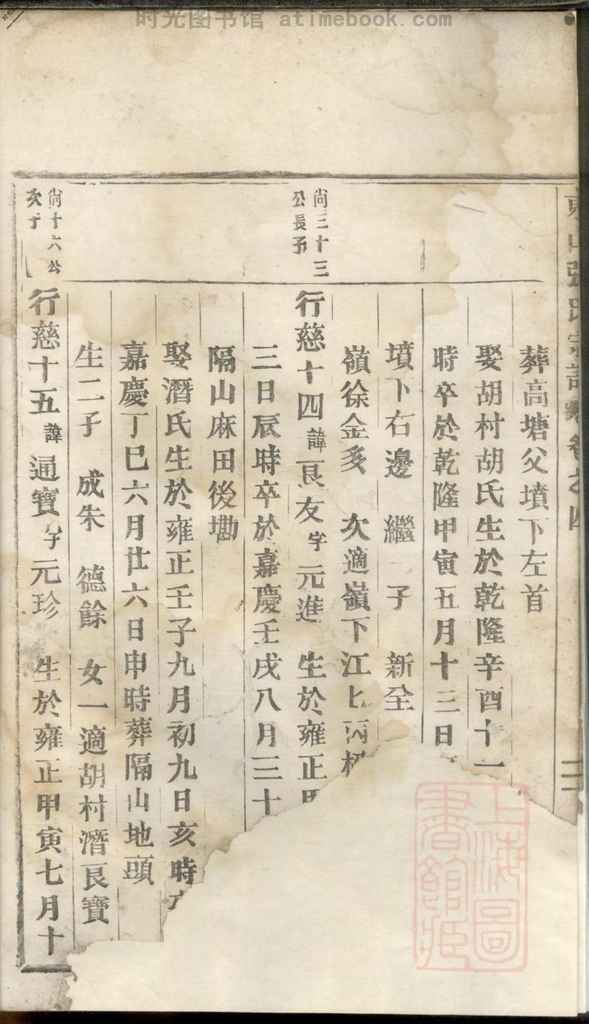 时光图书馆 atimebook.com
張氏宗譜 卷之四
葬高塘父墳下左首
娶胡村胡氏生於乾隆辛酉十一
時卒於乾隆甲寅五月十三日
墳下右邊 繼子 新全
嶺徐金多 次適嶺下江
尚三十三公長子
行慈十四 諱艮友 字元進 生於雍正
三日辰時卒於嘉慶壬戌八月三十
隔山麻田後墈
娶潛氏生於雍正壬子九月初九日亥時
嘉慶丁巳六月廿六日申時葬隔山地頭
生二子 成朱 德餘 女一適胡村潛艮寶
尚十六公次子
行慈十五 諱通寶 字元珍 生於雍正甲寅七月十
上海圖書館藏